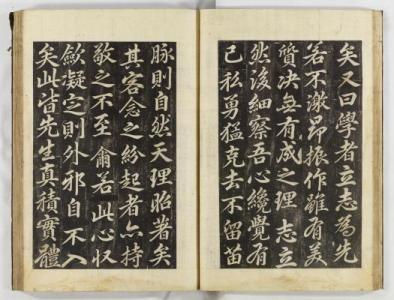 矣又曰學者立志為先
若不激昂振作雖有美
質決無有成之理志立
然後細察吾心纔覺有
己私勇猛克去不留苗
脉則自然天理昭著矣
其客念之紛起者亦持
敬之不至爾若此心收
斂凝定則外邪自不入
矣此皆先生真積實體